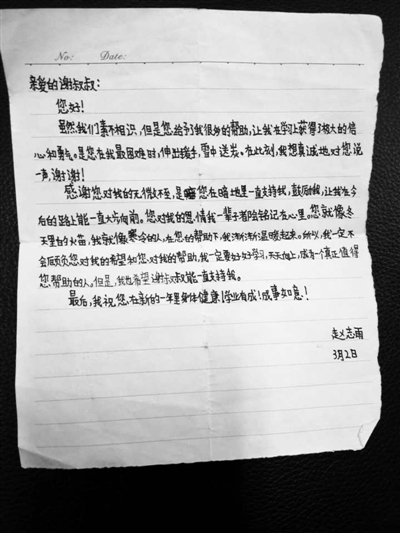 No:     Date:
亲爱的谢叔叔:
您好!
虽然我们素不相识,但是您给予了我很多的帮助,让我在学习上获得了极大的信
心和勇气。是您在我最困难时,伸出援手,雪中送炭。在此刻,我想真诚地对您说
一声,谢谢!
感谢您对我的无微不至,是您在暗地里一直支持我,鼓励我,让我在今
后的路上能一直大步向前。您对我的恩情我一辈子都会铭记在心里。您就像冬
天里的火苗,我就像寒冷的人,在您的帮助下,我渐渐温暖起来。所以,我一定不
会辜负您对我的希望和您对我的帮助,我一定要好好学习,天天向上,成为一个真正值得
您帮助的人。但是,我也希望谢叔叔能一直支持我。
最后,我祝您在新的一年里身体健康!学业有成!成事如意!
赵志雨
3月2日